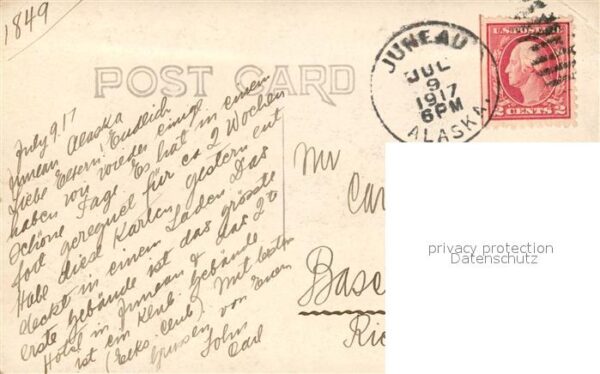 1849
POST CARD
JUNEAU
JUL
9
1917
6PM
ALASKA
U.S. POSTAGE
2 CENTS 2
July 9. 17
Juneau Alaska
Liebe Eltern! Endlich
haben wir wieder einige
schöne Tage. Es hat in einem
fort geregnet für ca 2 Wochen
Habe diese Karten gestern ent
deckt in einem Laden Das
erste gebäude ist das grösste
Hotel in Juneau & das 2te
ist ein Klub gebäude
(Elks. Club). Mit besten
Grüssen von Euern
Sohn
Carl
Mr
Car
Bas
Ric
privacy protection
Datenschutz